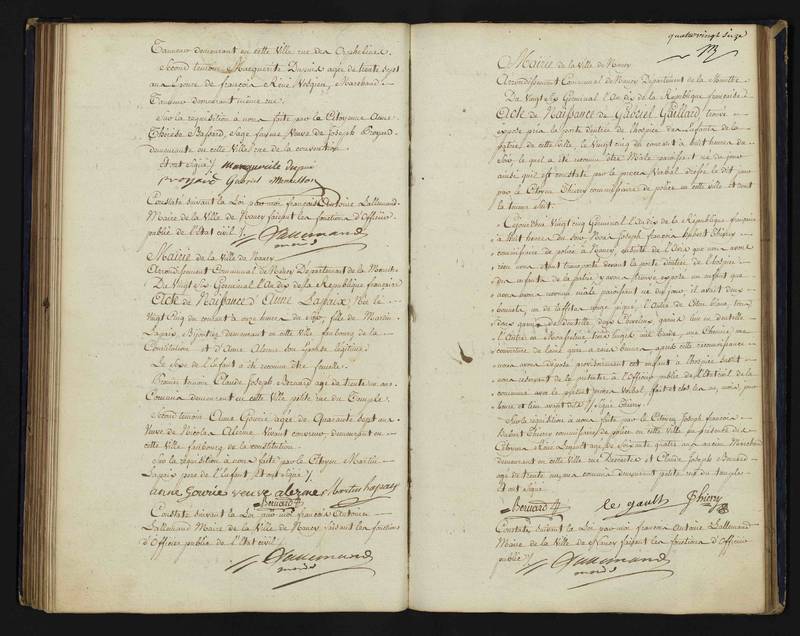 Tanneur demeurant en cette Ville rue des Orphelines.
Second temoin Marguerite Dupuis agée de trente sept
ans Epouse de françois Réné Marchand
Tanneur demeurant même rue.
Sur la requisition à nous faite par la Citoyenne Anne
Thérèse sage femme Veuve de Joseph Proyard
demeurante en cette Ville rue de la convention
Et ont signé /. Marguerite Dupui
proyard Gabriel
Constaté suivant la Loi par moi françois Antoine Lallemand
Maire de la Ville de Nancy faisant les fonctions d'Officier
public de l'Etat civil /. Lallemand
Mairie de la Ville de Nancy
Arrondissement Communal de Nancy Département de la Meurthe
Du Vingt Six Germinal l'an dix de la République française
Acte de Naissance d'Anne Lapaix Née le
Vingt Cinq du courant à onze heures du fille de Martin
Lapaix, Bijoutier demeurant en cette Ville faubourg de la
Constitution et d'Anne Alerme son Epouse légitime.
Le sexe de l'Enfant a été reconnu être femelle.
Premier temoin Claude Joseph Bernard agé de trente un ans
Commis demeurant en cette Ville petite rue du Temple.
Second temoin Anne Gouvié agée de Quarante sept ans
Veuve de Nicolas Alerme Vivant demeurant en
cette Ville faubourg de la constitution.
Sur la requisition à nous faite par le Citoyen Martin
Lapaix pere de l'Enfant, Et ont signé /.
anne Gouvie veuve alerme Martin Lapaix
Bernard
Constaté suivant la Loi par moi françois Antoine
Lallemand Maire de la Ville de Nancy faisant les fonctions
d'Officier public de l'Etat civil /.
Lallemand
quatrevingt seize
Mairie de la Ville de Nancy
Arrondissement Communal de Nancy Département de la Meurthe
Du Vingt Six Germinal l'An dix de la République française
Acte de Naissance de Gabriel Gaillard trouvé
exposé près la porte d'entrée de l'hospice des Enfants de la
patrie de cette ville, le Vingt cinq du courant à huit heures du
Soir, lequel a été reconnu être Mâle paraissant né du jour
ainsi qu'il est constaté par le procès Verbal dressé le dit jour
par le Citoyen Thiery commissaire de police en cette Ville et dont
la teneur suit.
Cejourd'hui Vingt cinq Germinal l'An dix de la République française
à huit heures du soir Nous Joseph françois hubert Thiery
commissaire de police à Nancy, de l'avis que nous avons
reçu nous étant transporté devant la porte d'entrée de l'hospice
des enfants de la patrie y avons trouvé exposé un enfant que
nous avons reconnu mâle paraissant né du jour, il avait deux
l'Autre de Coton blanc, trois
dont
l'Autre en Mousseline trois langes une Chemise, une
couverture de laine
nous avons déposé provisoirement cet enfant à l'hospice
nous reservant de le présenter à l'Officier public de l'Etat civil de la
commune avec le présent procès Verbal, fait et clos les an, mois, jour
heure et lieu avant dits /. signé Thiery.
Sur la requisition à nous faite par le Citoyen Joseph françois
hubert Thiery commissaire de police en cette Ville en présence des
Citoyens agé de Soixante quatre ans ancien Marchand
demeurant en cette Ville rue et Claude Joseph Bernard
agé de trente un ans commis demeurant petite rue du temple.
Et ont signé
Bernard le gault Thiery
Constaté suivant la Loi par moi françois Antoine Lallemand
Maire de la Ville de Nancy faisant les fonctions d'Officier
public /. Lallemand